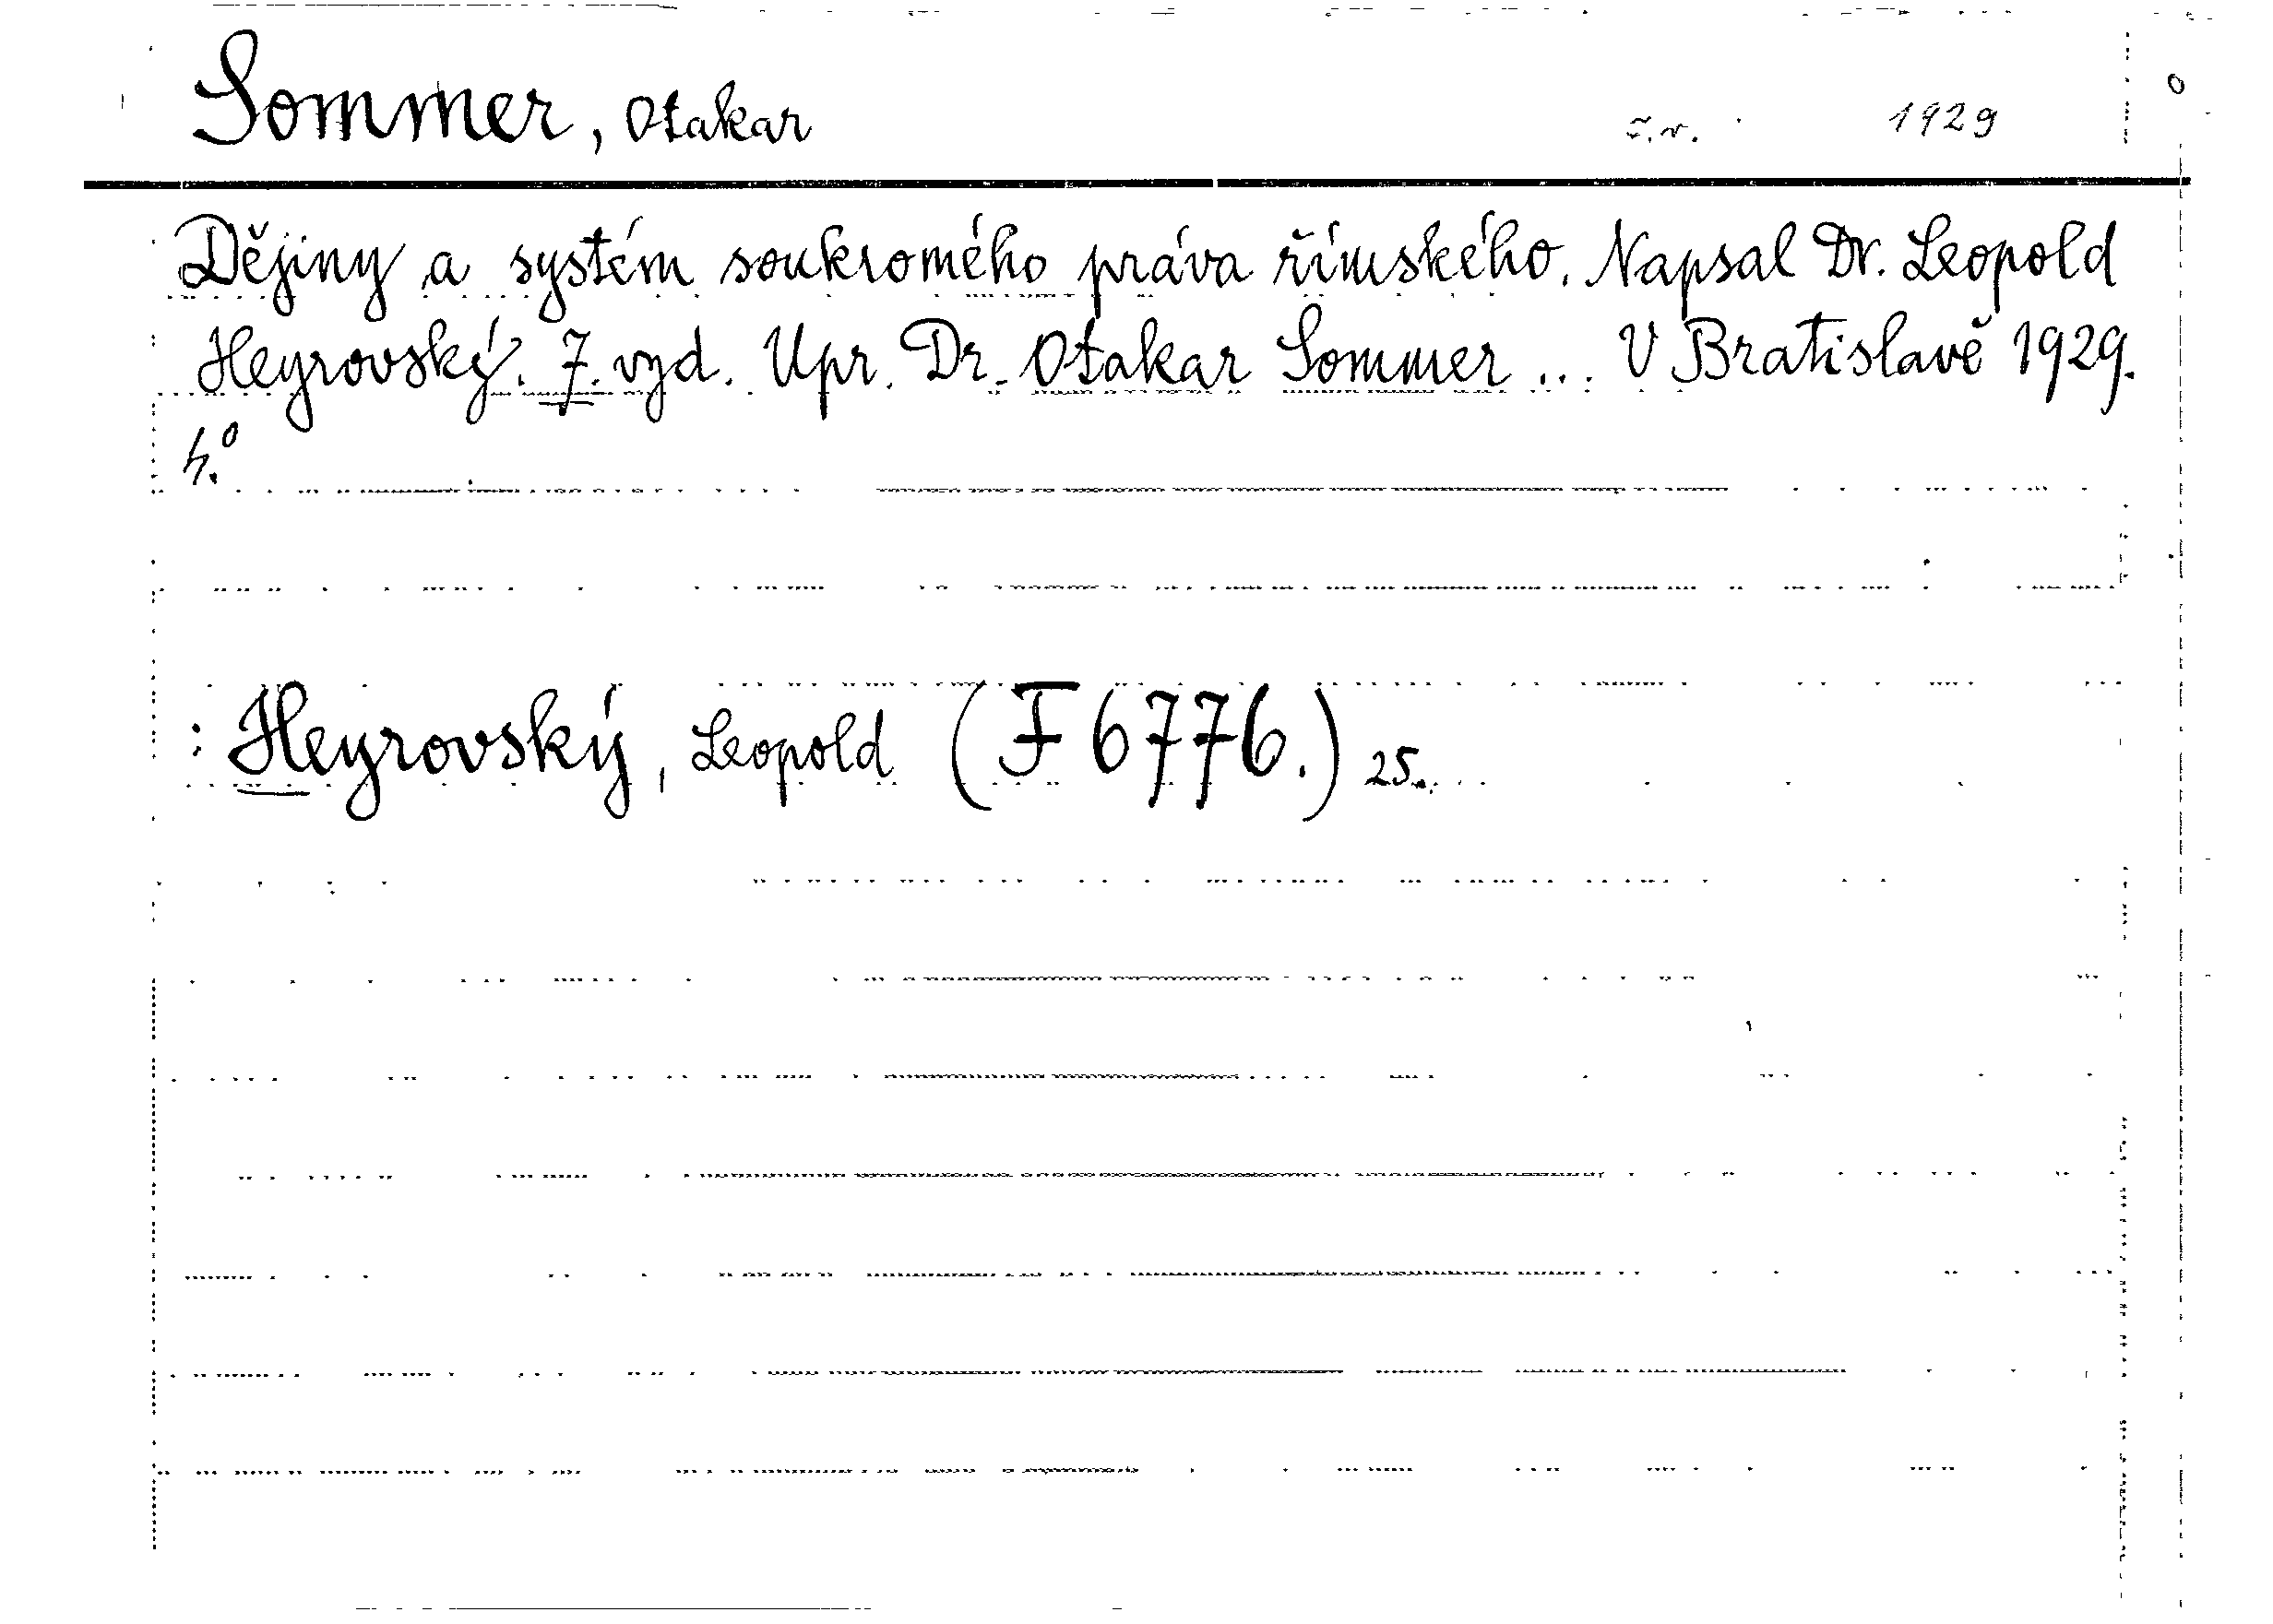 Sommer, Otakar č.r. 1929
Dějiny a systém soukromého práva římského. Napsal Dr. Leopold
Heyrovský. 7. vyd. Upr. Dr. Otakar Sommer ... V Bratislavě 1929.
4.°
: Heyrovský, Leopold (F 6776.) 25.